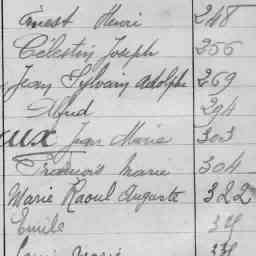 Ernest Henri 248
Célestin Joseph 256
Jean Sylvain Adolphe 269
Alfred 294
aux Jean Marie 303
François Marie 304
Marie Raoul Auguste 322
Emile
Marie